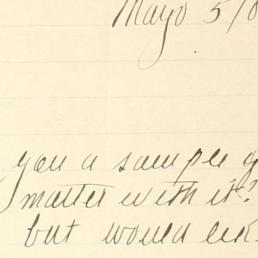 Mayo 5/0
you a sample
matter with it?
but would